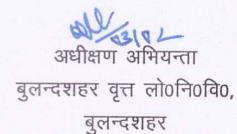 अधीक्षण अभियन्ता
बुलन्दशहर वृत्त लो0नि0वि0,
बुलन्दशहर